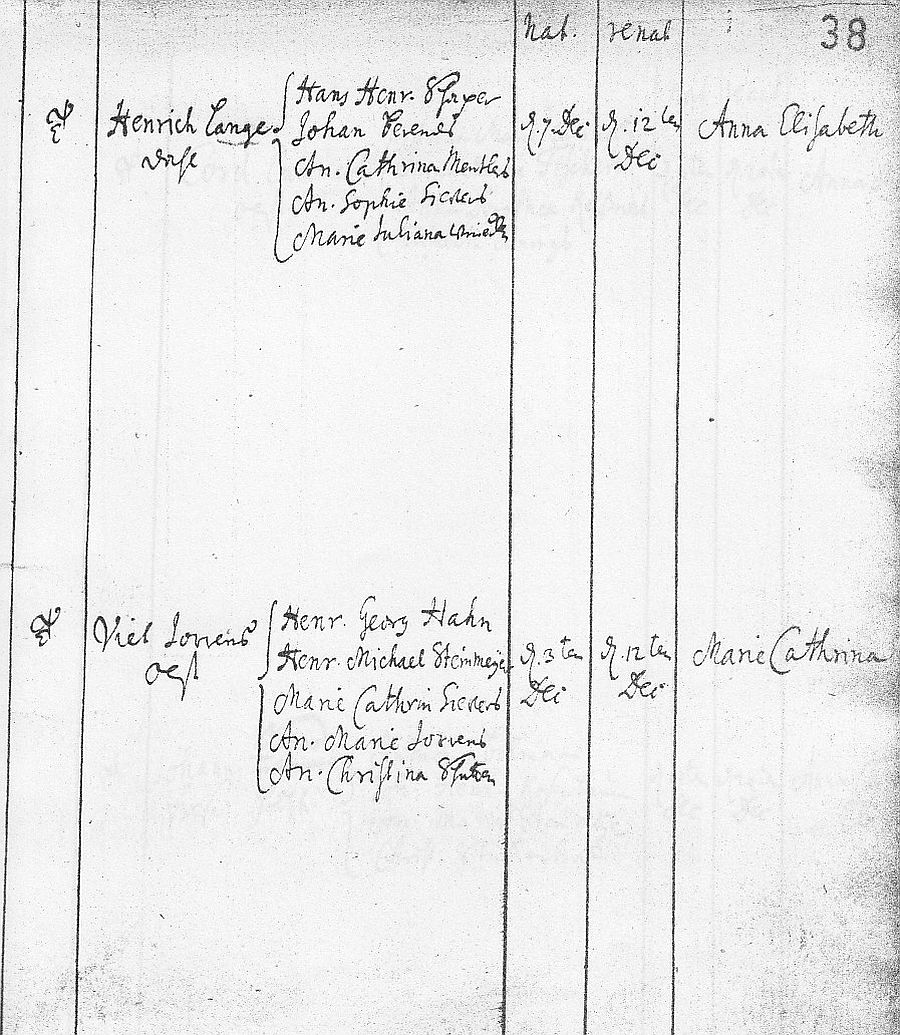 nat. renat 38
Henrich Lange
Hans Henr.
Johan Berends
An. Cathrina
An. Sophie Sievers
Marie Juliana
d. 7. Dec
d. 12 ten
Dec
Anna Elisabeth
Viet Lorrens
Henr. Georg Hahn
Henr. Michael Steinmeyer
Marie Cathrin Sievers
An. Marie Lorrens
An. Christina
d. 3 ten
Dec
d. 12 ten
Dec
Marie Cathrina